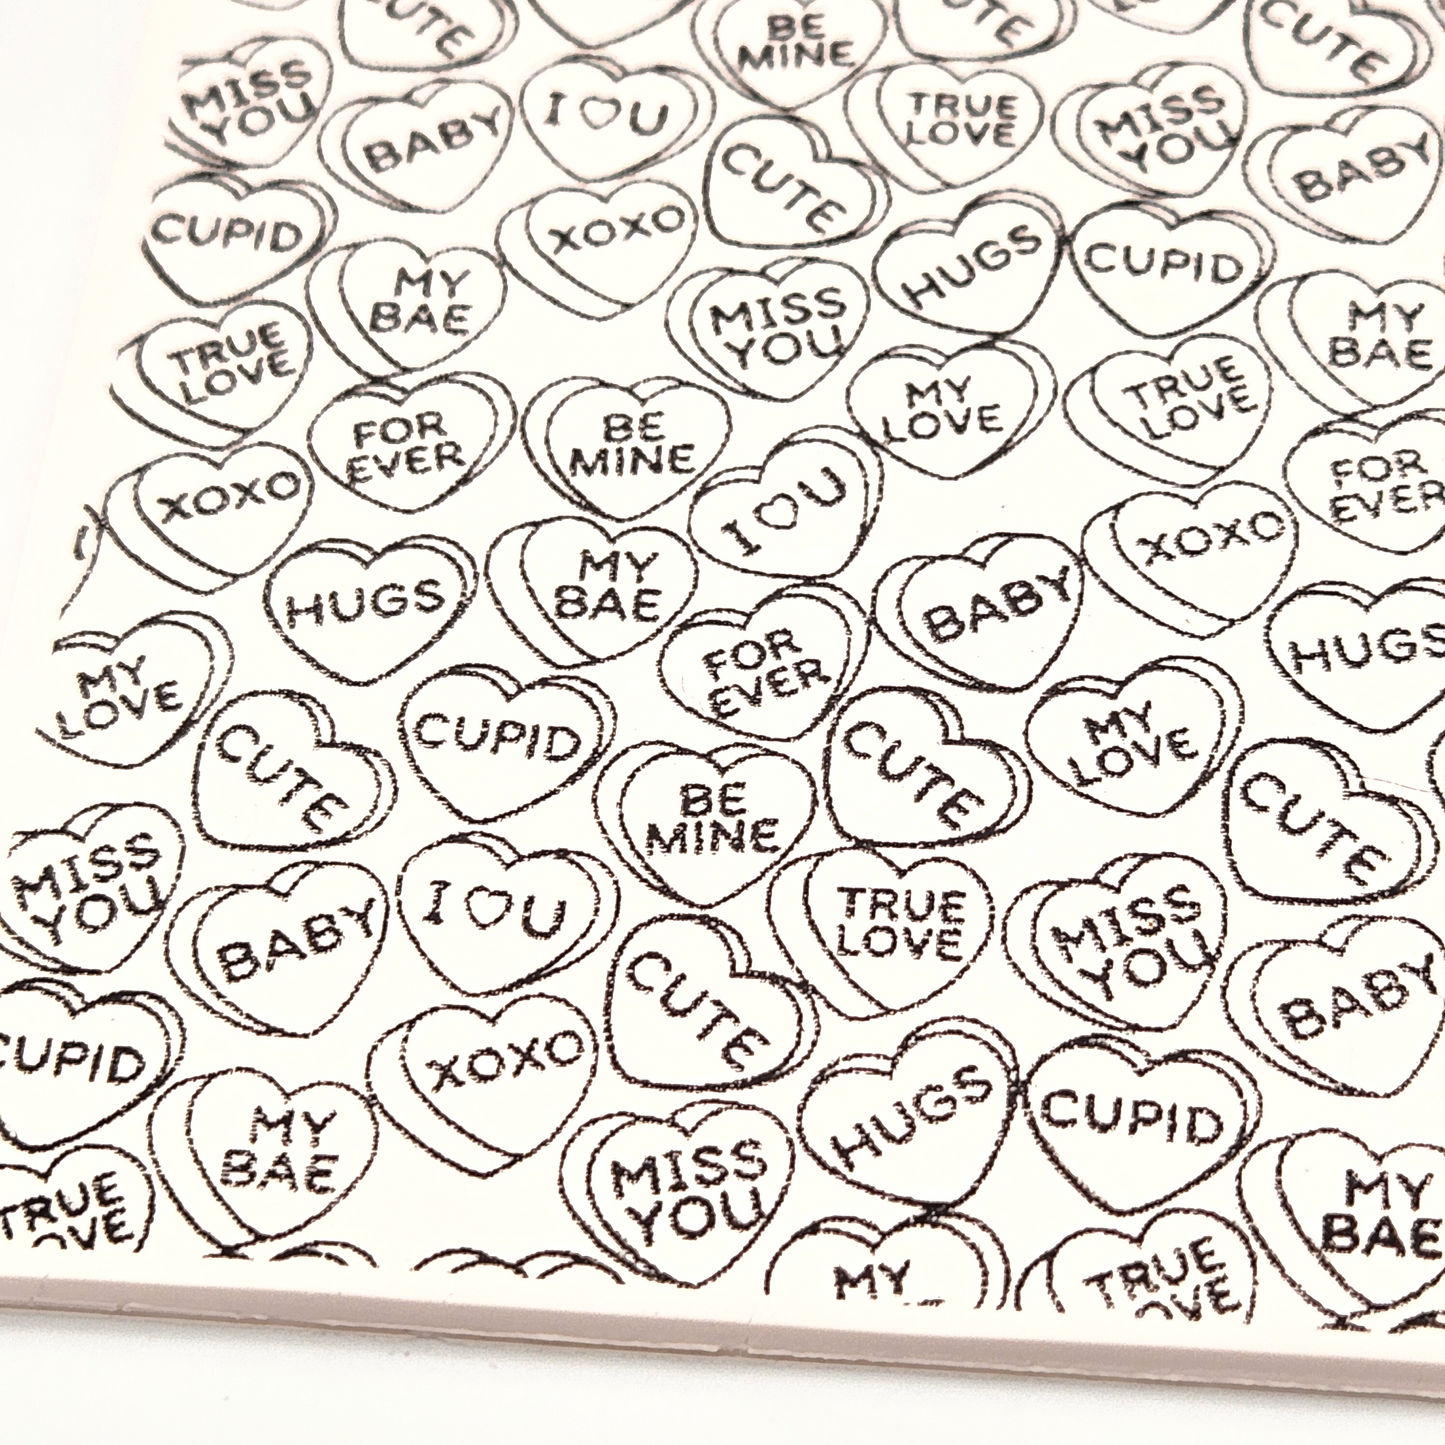 CUTE
BE
MINE
CUTE
CUTE
MISS
YOU
BABY
I ♡ U
TRUE
LOVE
MISS
YOU
BABY
CUPID
XOXO
CUTE
HUGS
CUPID
MY
BAE
MISS
YOU
MY
BAE
TRUE
LOVE
FOR
EVER
BE
MINE
MY
LOVE
TRUE
LOVE
FOR
EVER
XOXO
I ♡ U
XOXO
HUGS
MY
BAE
BABY
HUGS
MY
LOVE
FOR
EVER
MY
LOVE
CUTE
CUPID
BE
MINE
CUTE
CUTE
MISS
YOU
BABY
I ♡ U
TRUE
LOVE
MISS
YOU
BABY
CUPID
XOXO
CUTE
HUGS
CUPID
MY
BAE
MISS
YOU
MY
BAE
TRUE
OVE
MY
TRUE
OVE